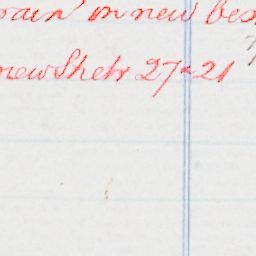 rain in new bes
new Shetr 27 x 21